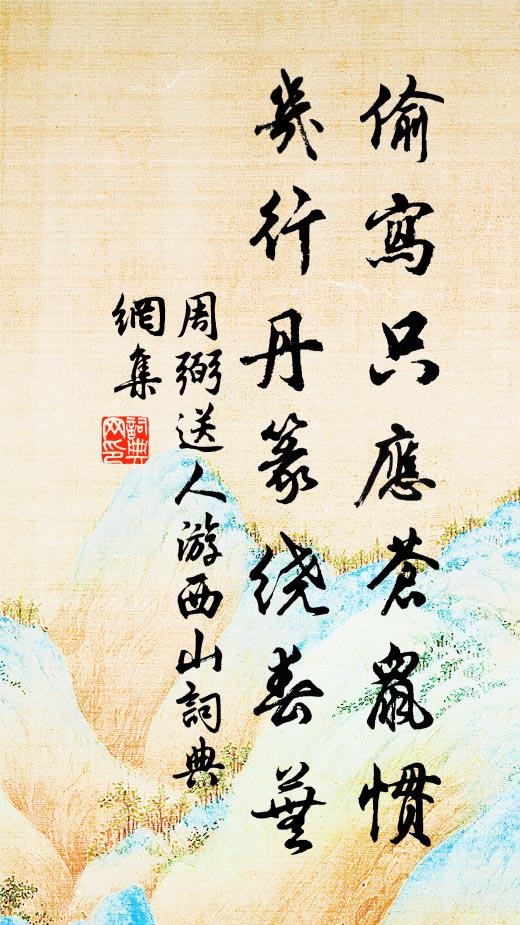 偷寫只應蒼鼠慣
幾行丹篆繞春蕪
周弼送人游西山詞典
網集
詞典
网印